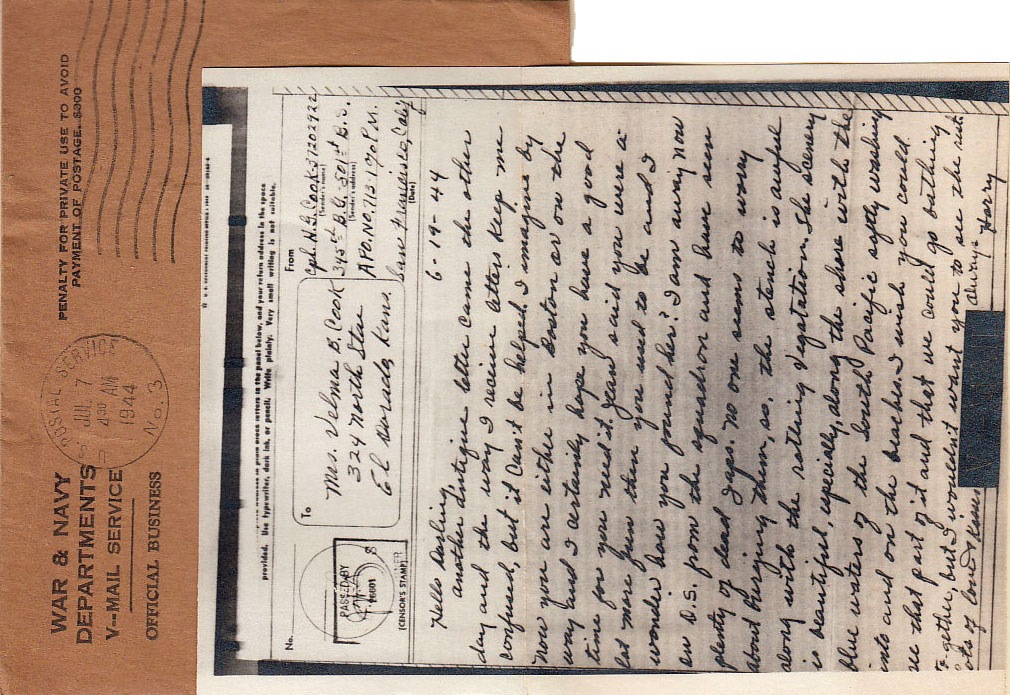 WAR & NAVY
DEPARTMENTS
V-MAIL SERVICE
OFFICIAL BUSINESS
PENALTY FOR PRIVATE USE TO AVOID
PAYMENT OF POSTAGE, $300
POSTAL SERVICE
JUL 7
4 30 AM
1944
No. 3
provided. Use typewriter, dark ink, or pencil. Write plainly. Very small writing is not suitable.
No.
PASSED BY
(CENSOR'S STAMP)
To
Mrs. Velma B. Cook
324 North Star
El Dorado, Kans.
From
Cpl. H.G. Cook 37202922
(Sender's name)
315st B.G. 501st B.S.
(Sender's address)
APO. No. 713-1 % P.M.
San Fransisco, Calif
(Date)
6-19-44
Hello Darling
another antique letter came the other
day and the way I receive letters keep me
confused, but it can't be helped. I imagine by
now you are either in Boston or on the
way and I certainly hope you have a good
time for you need it. Jean said you were a
lot more fun than you used to be and I
wonder how you found her? I am away now
on D.S. from the squadron and have seen
plenty of dead Japs. No one seems to worry
about burying them, so, the stench is awful
along with the rotting vegetation. The scenery
is beautiful, especially, along the shore with the
blue waters of the South Pacific softly washing
into and on the beaches. I wish you could
see that part of it and that we could go bathing
to-gether, but I wouldn't want you to see the rest.
Lots of love & kisses
always
Harry